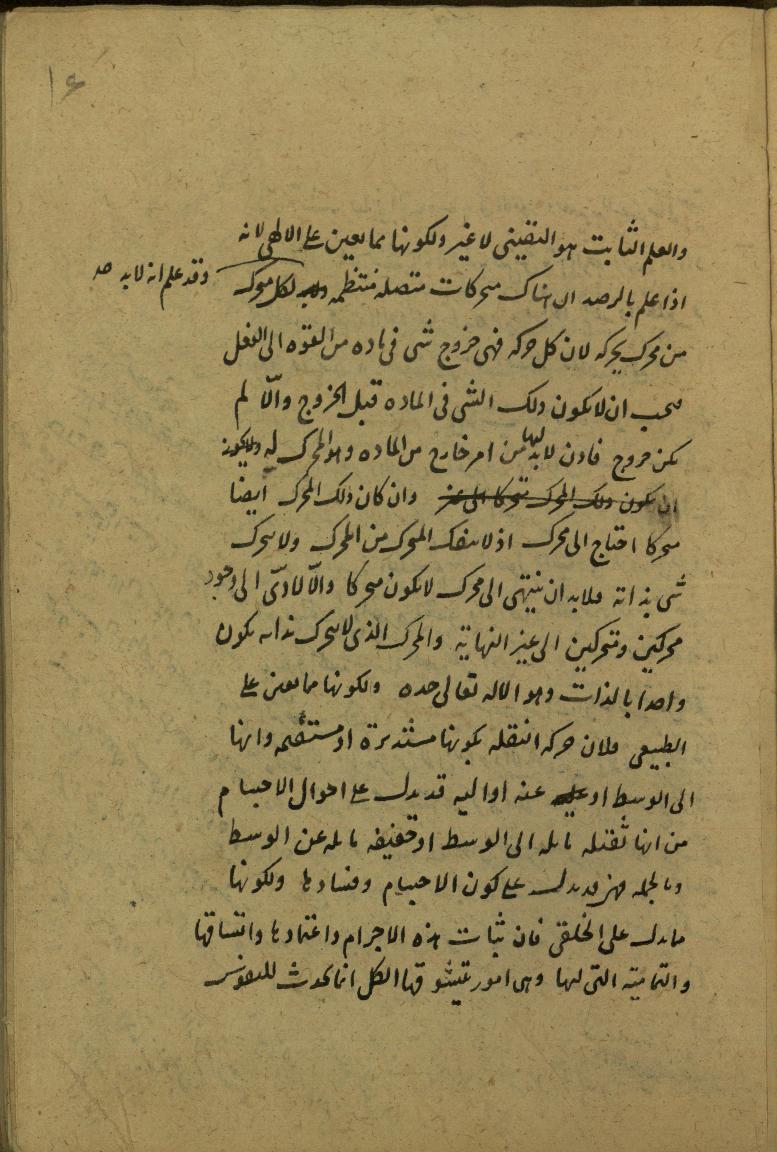 ١٤
والعلم الثابت هو اليقينى لا غير ولكونها مما يعين على الالهى لانه
اذا علم بالرصد ان هناك متحركات متصله منتظمه لكل متحرك
وقد علم انه لا بد صح
من محرك يحركه لان كل حركه فهى خروج شى فى ماده من القوه الى الفعل
فيجب ان لا يكون ذلك الشى فى الماده قبل الخروج والّا لم
يكن خروج فاذن لا بد لها من امر خارج من الماده وهو المحرك
ان يكون ذلك المحرك متحركا وان كان ذلك المحرك ايضا
متحركا احتاج الى محرك اذ لا ينفك المتحرك من المحرك ولا يتحرك
شى بذاته فلا بد ان ينتهى الى محرك لا يكون متحركا والّا لادّى الى وجود
محركين ومتحركين الى غير النهاية والمحرك الذى لا يتحرك بذاته يكون
واحدا بالذات وهو الاله تعالى حده ولكونها مما يعين على
الطبيعى فلان حركه النقله بكونها مستديرة او مستقيمه وانها
الى الوسط او عنه او اليه قد يدل على احوال الاجسام
من انها ثقيله مايله الى الوسط او خفيفه مايله عن الوسط
وبالجمله فهى قد يدل على كون الاجسام وفسادها ولكونها
مما يدل على الخلقى فان ثبات هذه الاجرام واعتمادها واتساقها
والتماميّة التى لها وهى امور يتشوقها الكل انما يحدث للنفوس